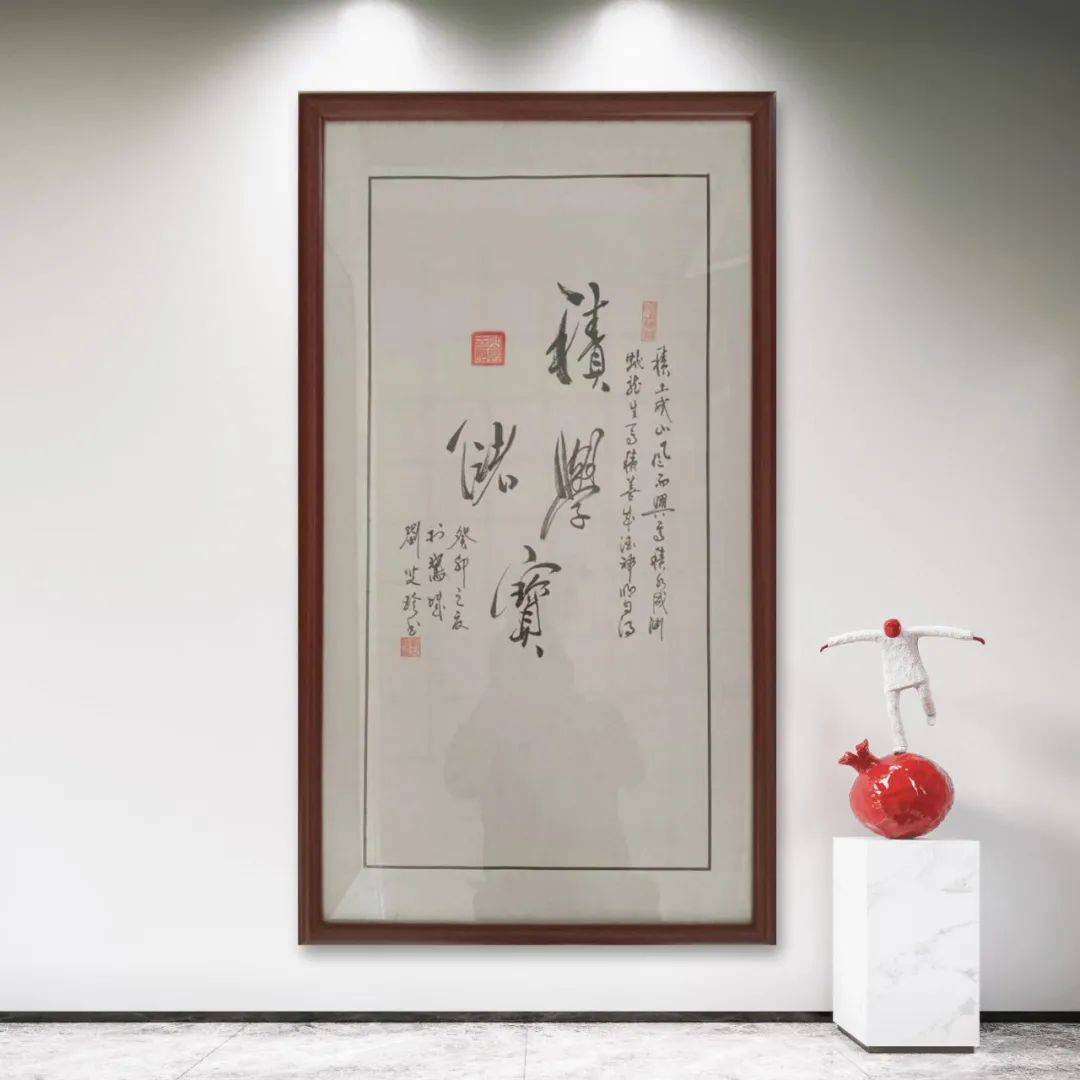 積土成山风雨興焉積水成渊
蛟龍生焉積善成德神明自得
積學
儲寶
癸卯之夏
於 城
劉 书